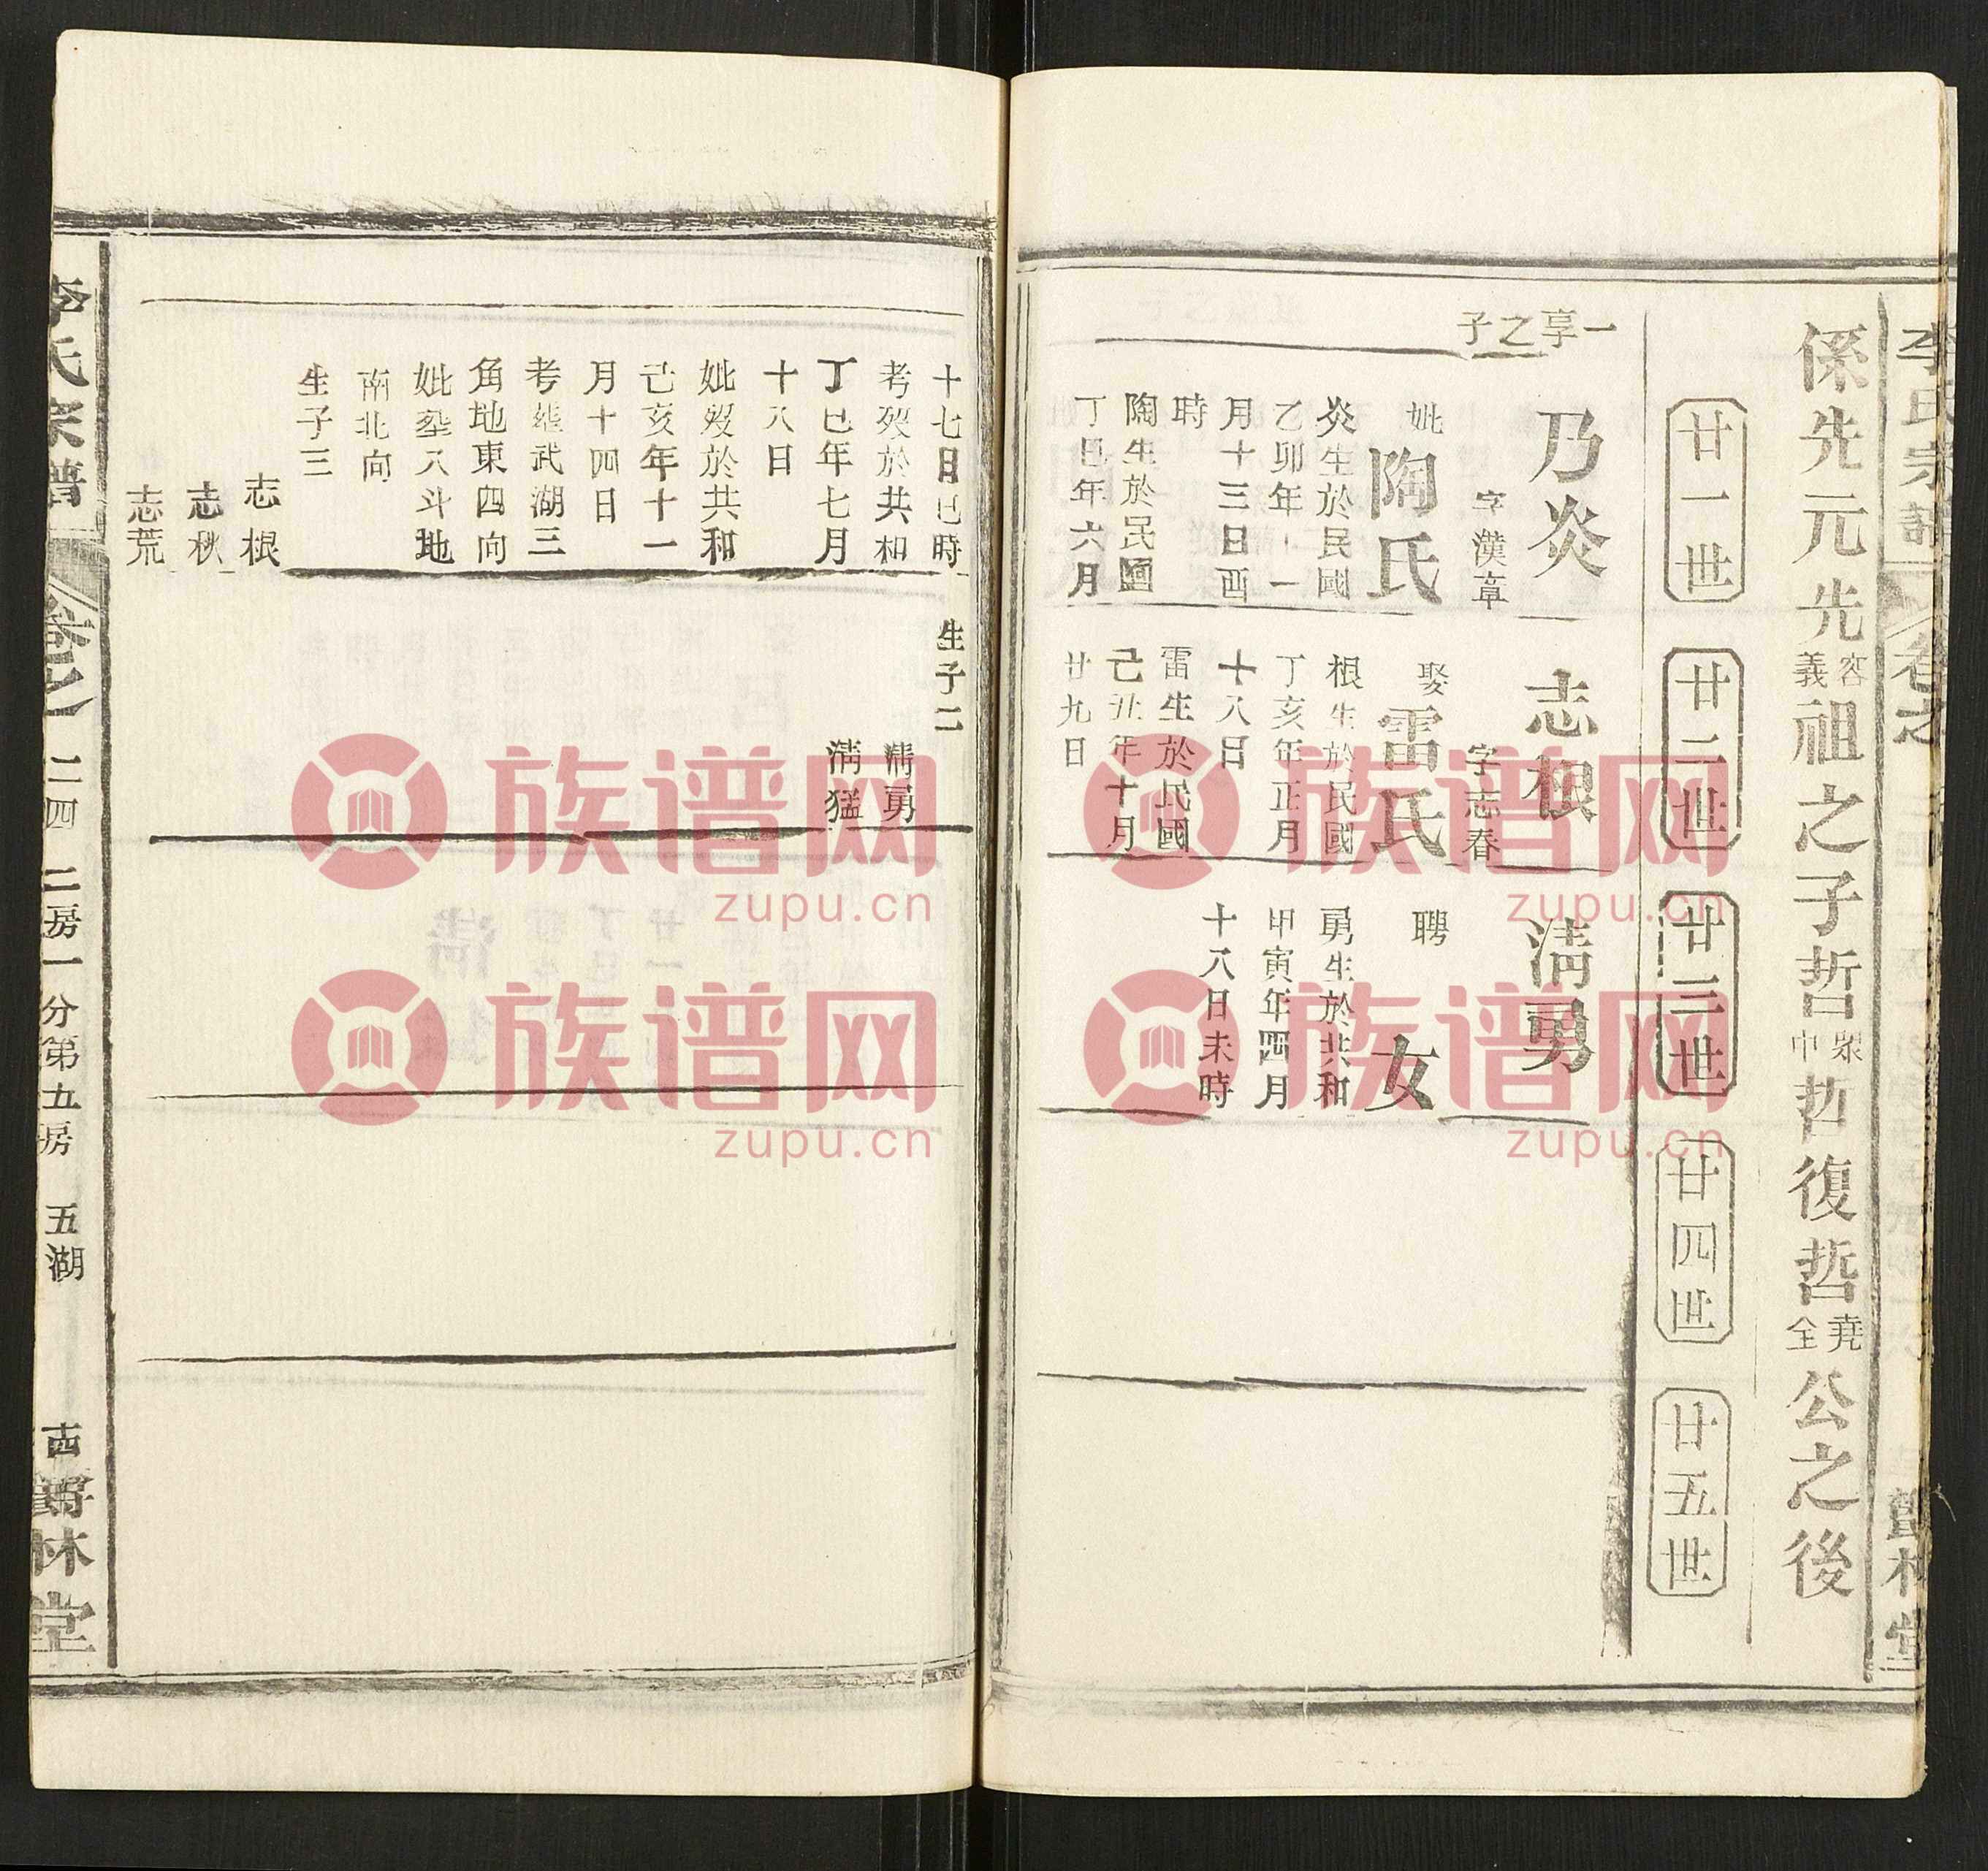 係先元先容義祖之子哲眾中哲復哲堯全公之後
廿一世
廿二世
廿三世
廿四世
廿五世
一享之子
乃炎
字漢章
妣陶氏
炎生於民國
乙卯年十一
月十三日酉
時
陶生於民國
丁巳年六月
十七日巳時
考歿於共和
丁巳年七月
十八日
妣歿於共和
己亥年十一
月十四日
考塟武湖三
角地東四向
妣塟八斗地
南北向
生子三
志根
志秋
志荒
志根
字志春
娶雷氏
根生於民國
丁亥年正月
十八日
雷生於民國
己丑年十月
廿九日
生子二
清勇
清猛
清勇
聘女
勇生於共和
甲寅年四月
十八日未時
李氏宗譜
卷之
林堂
李氏宗譜
卷之一
二四
二房一分第五房
五湖
西爵林堂
族谱网
zupu.cn
族谱网
zupu.cn
族谱网
zupu.cn
族谱网
zupu.cn